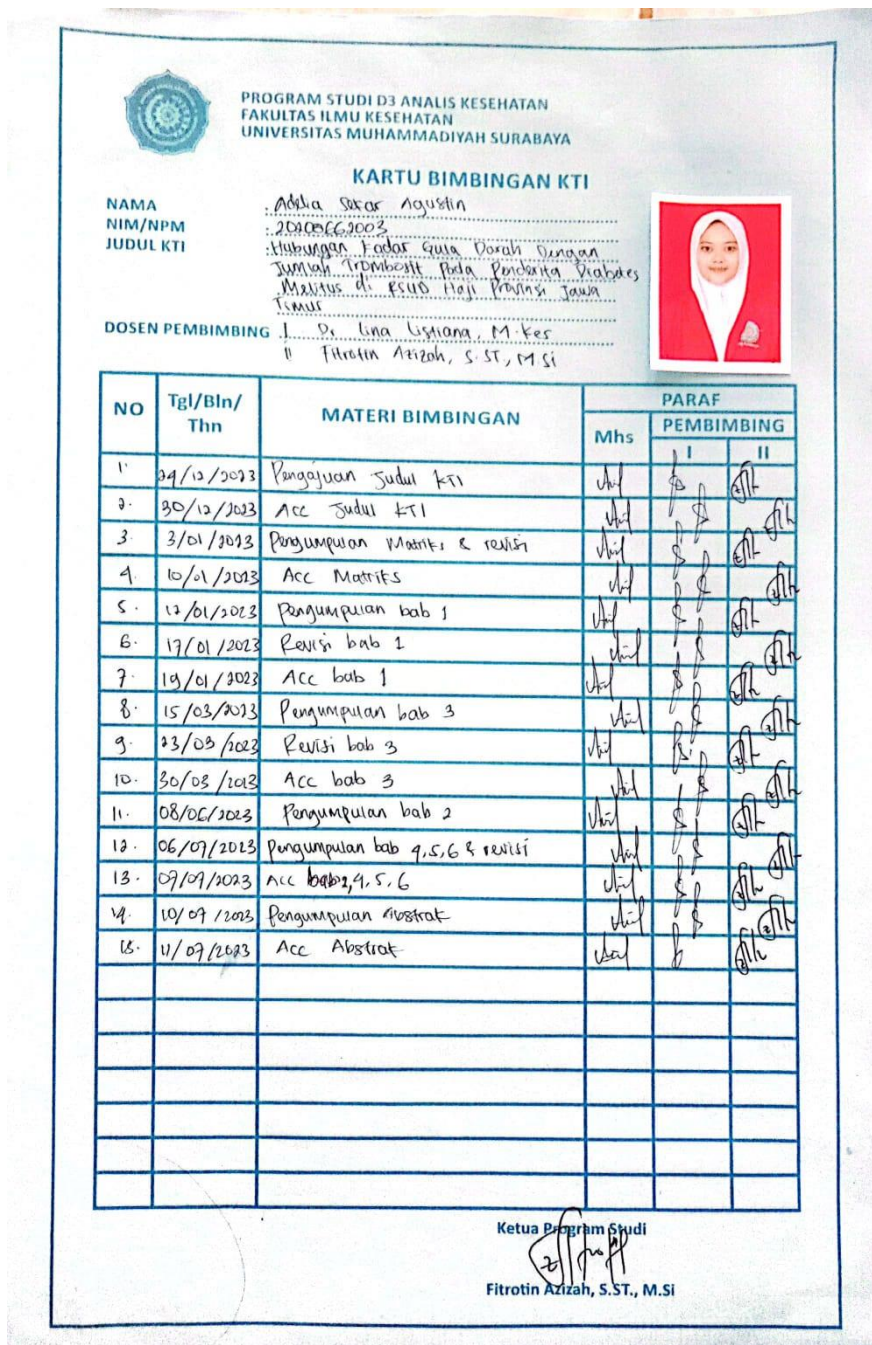 PROGRAM STUDI D3 ANALIS KESEHATAN
FAKULTAS ILMU KESEHATAN
UNIVERSITAS MUHAMMADIYAH SURABAYA
KARTU BIMBINGAN KTI
NAMA : Adelia Sekar Agustin
NIM/NPM : 20200662003
JUDUL KTI : Hubungan Kadar Gula Darah Dengan
Jumlah Trombosit Pada Penderita Diabetes
Melitus di RSUD Haji Provinsi Jawa
Timur
DOSEN PEMBIMBING I. Dr Lina Listiana, M.Kes
II Fitrotin Azizah, S.ST, M.Si
NO Tgl/Bln/Thn MATERI BIMBINGAN PARAF
Mhs PEMBIMBING
I II
1. 29/12/2023 Pengajuan Judul KTI
2. 30/12/2023 Acc Judul KTI
3. 3/01/2023 Pengumpulan Matriks & revisi
4. 10/01/2023 Acc Matriks
5. 12/01/2023 Pengumpulan bab 1
6. 17/01/2023 Revisi bab 1
7. 19/01/2023 Acc bab 1
8. 15/03/2023 Pengumpulan bab 3
9. 23/03/2023 Revisi bab 3
10. 30/03/2023 Acc bab 3
11. 08/06/2023 Pengumpulan bab 2
12. 06/07/2023 Pengumpulan bab 4,5,6 & revisi
13. 07/07/2023 Acc bab 2,4,5,6
14. 10/07/2023 Pengumpulan Abstrak
15. 11/07/2023 Acc Abstrak
Ketua Program Studi
Fitrotin Azizah, S.ST., M.Si